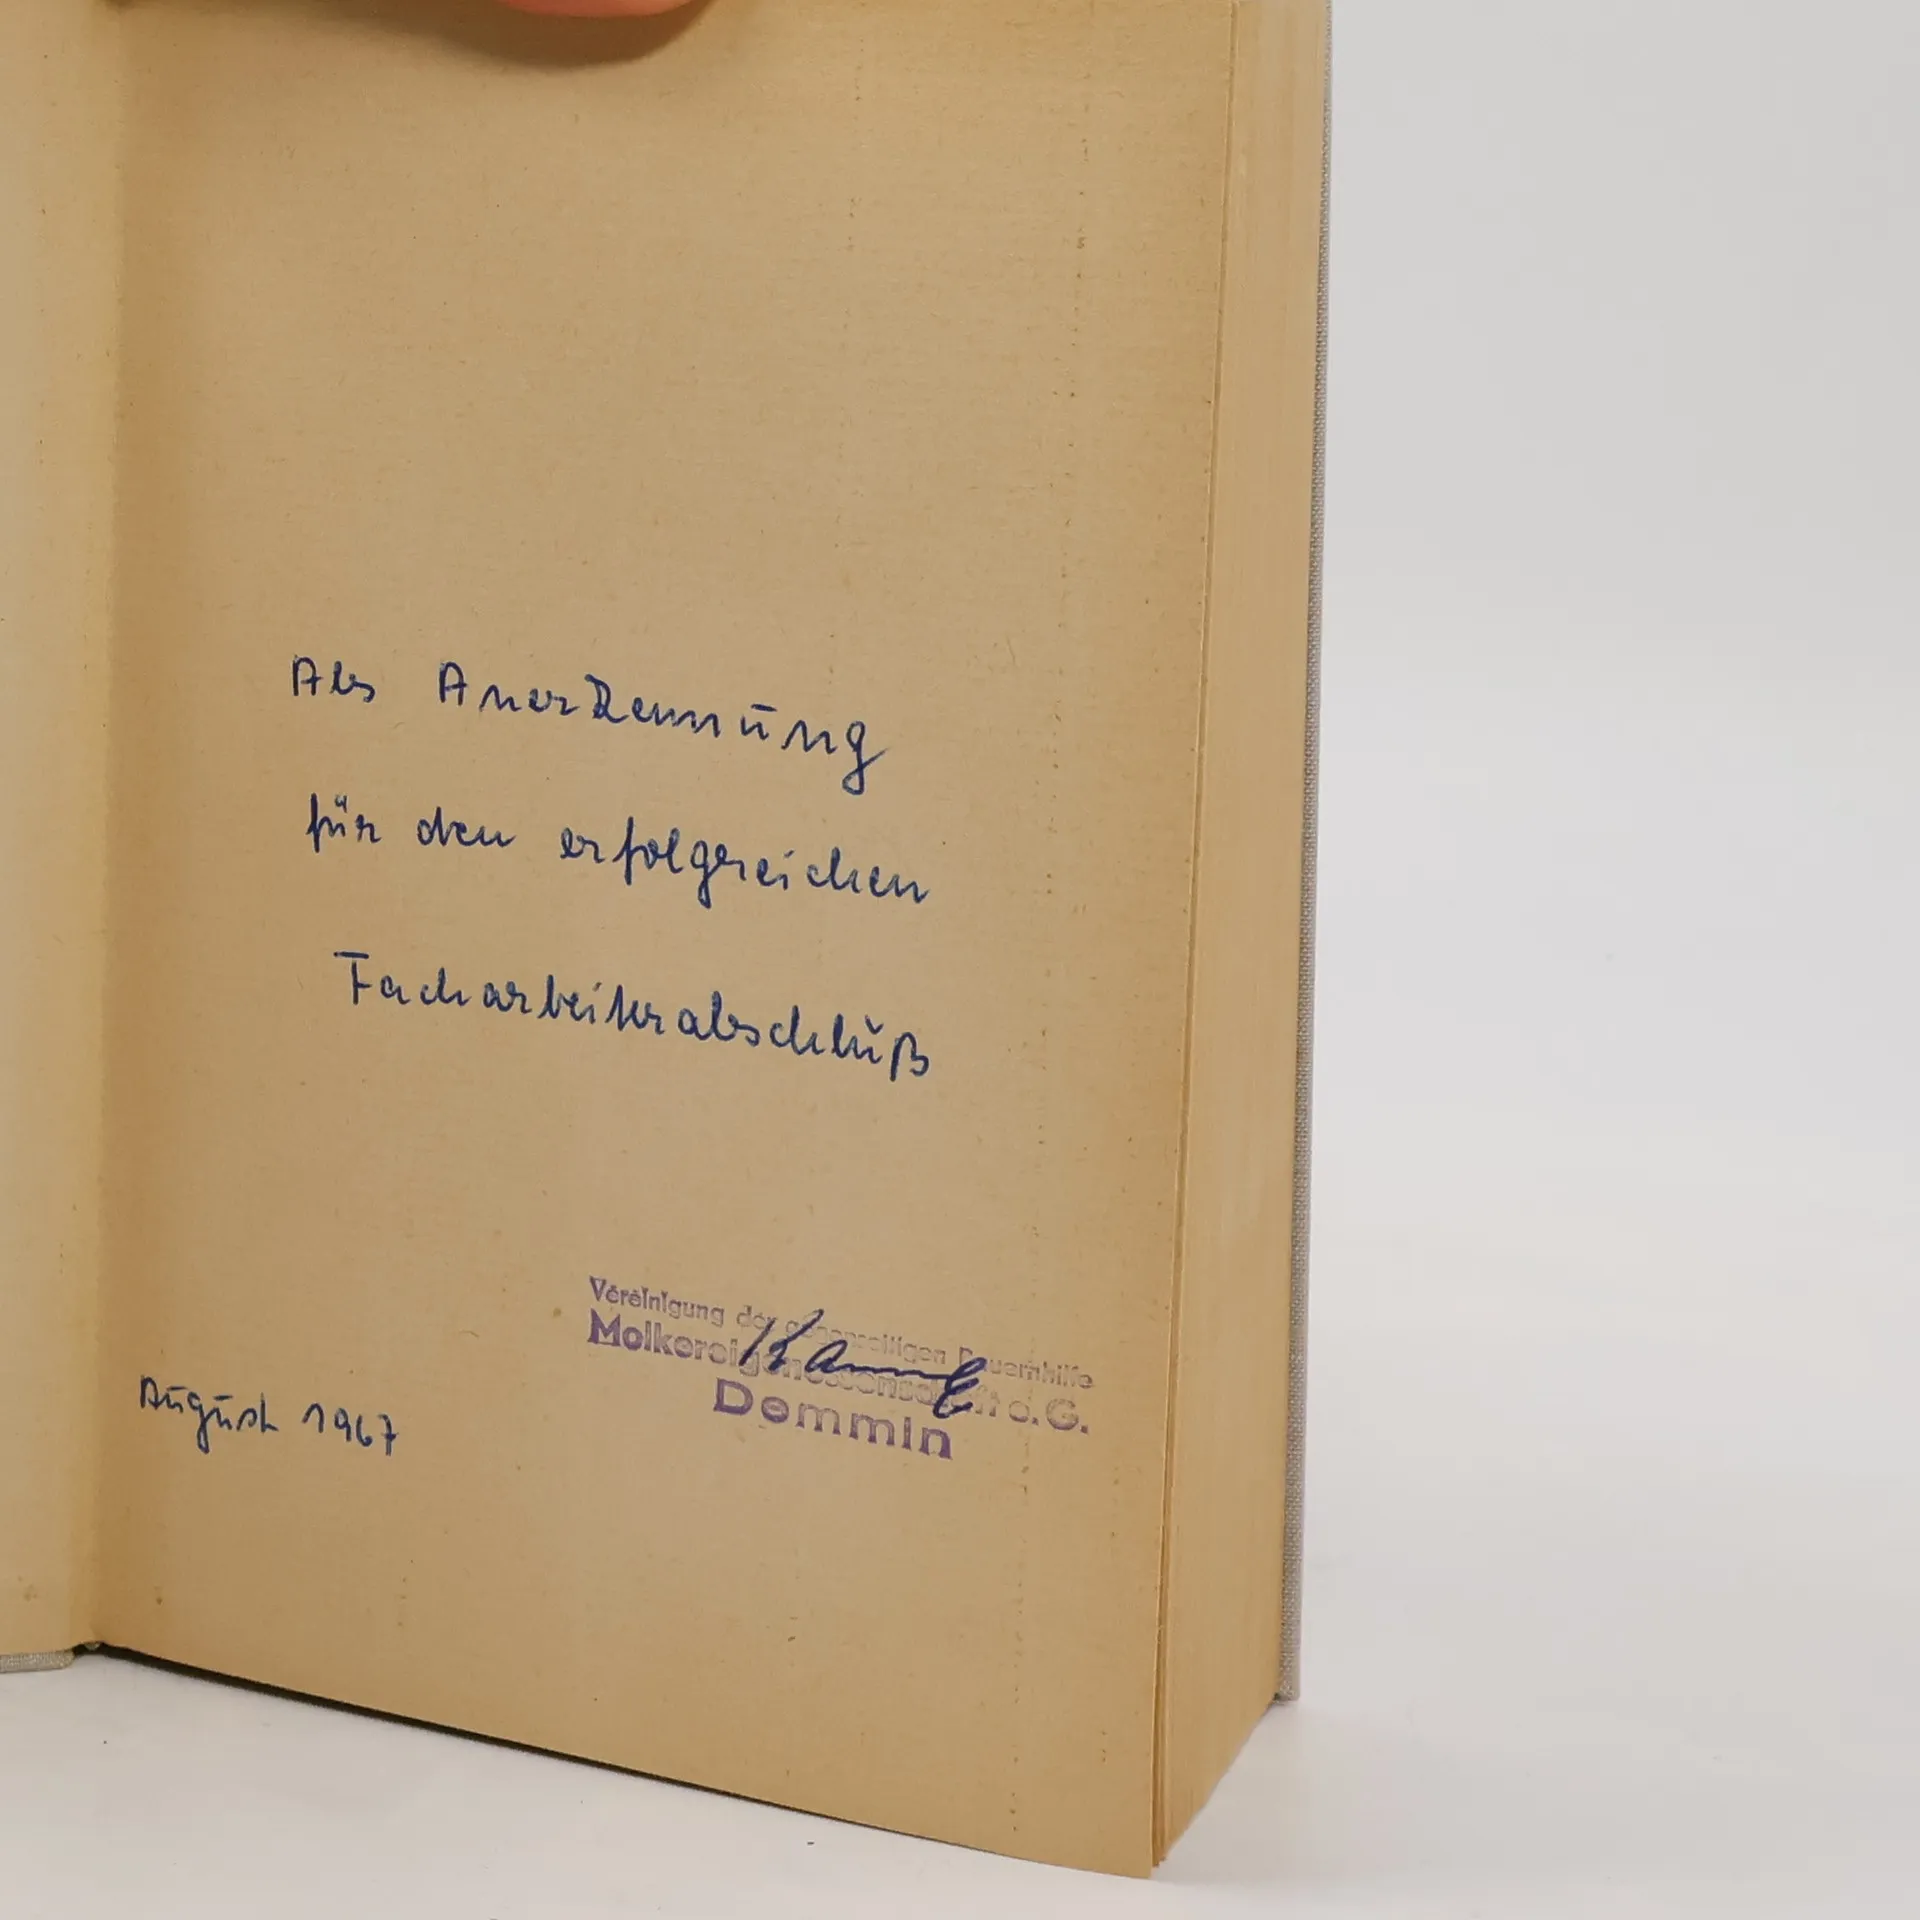 Als Anerkennung
für den erfolgreichen
Facharbeiterabschluß
August 1967
Vereinigung der gegenseitigen Bauernhilfe
Molkereigenossenschaft e.G.
Demmin